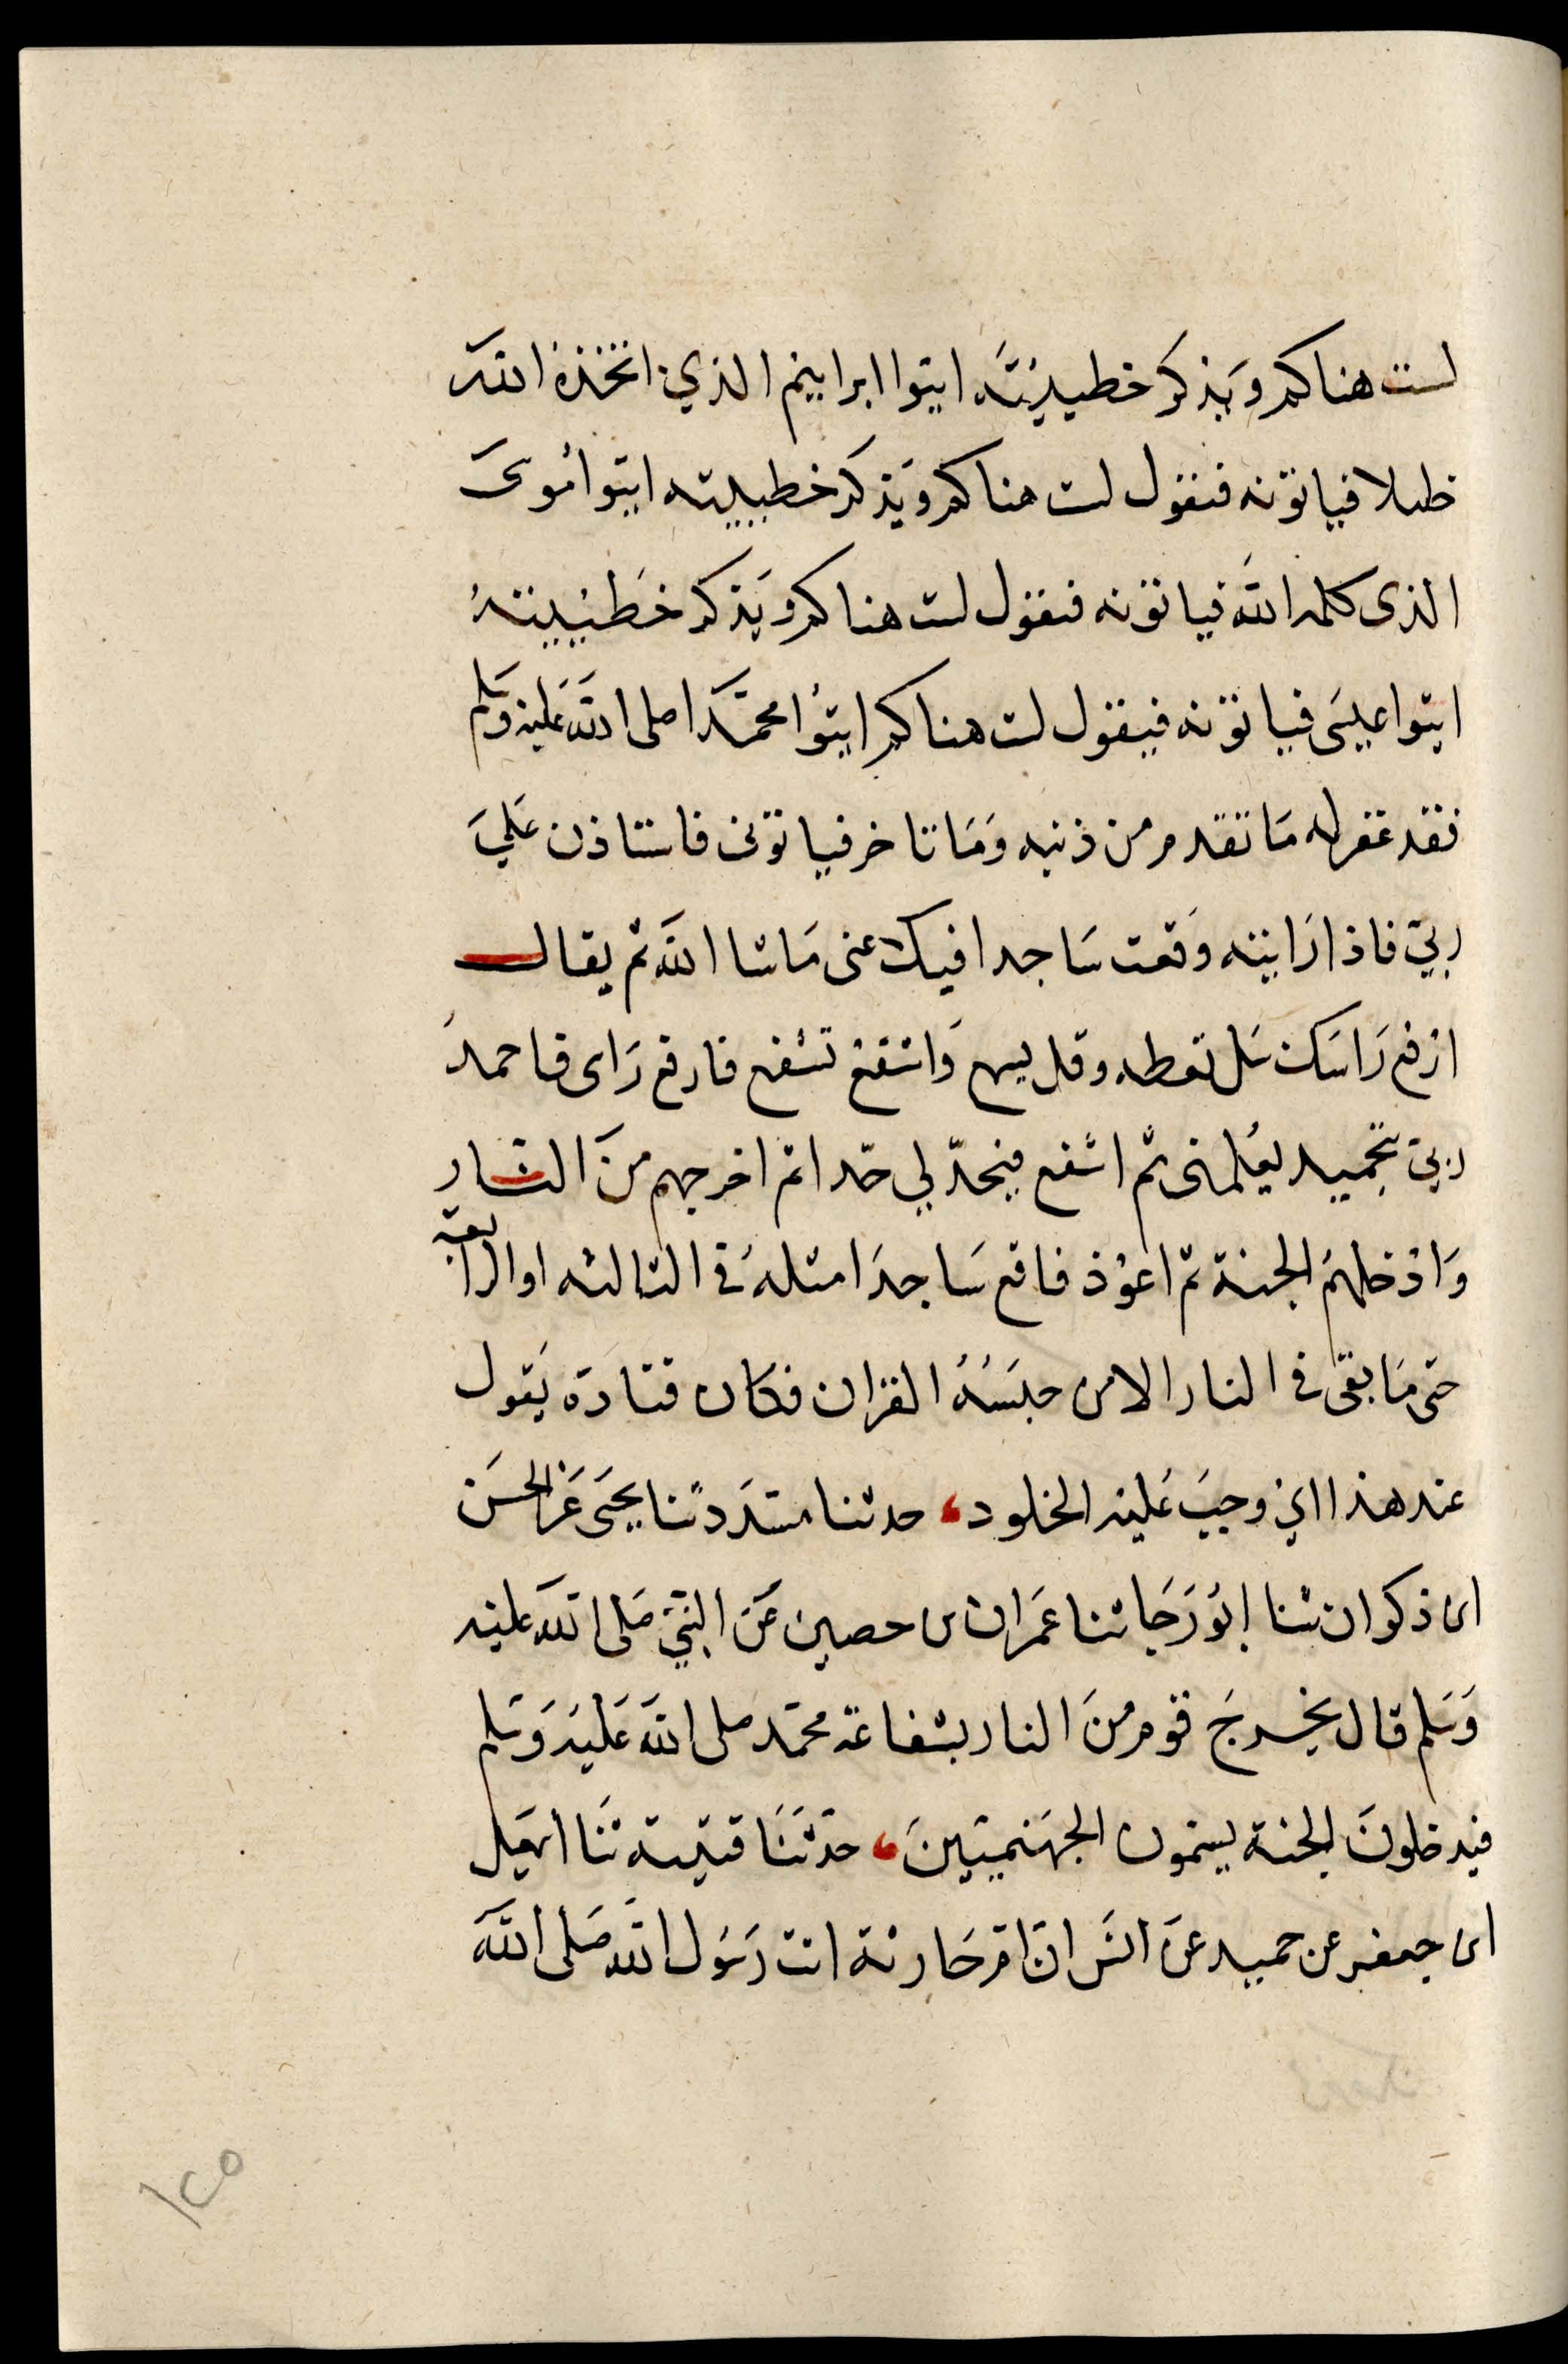 لست هناكم وَيذكر خطيئته ايتوا ابراهيم الذي اتخذه الله
خليلا فياتونه فيقول لست هناكم وَيذكر خطيئته ايتوا مُوسى
الذى كلمه الله فياتونه فيقول لست هناكم وَيَذكر خَطيئته
ايتوا عيسَى فياتونه فيقول لست هناكم ايتوُا محمَّدا صلى الله عَليه وَسَلم
فقد غفر له مَا تقدم من ذنبه وَمَا تاخر فياتوني فاستاذن عَلَي
ربيّ فاذا رَايته وَقعت سَاجدا فيدعنى مَا شا الله ثم يقال
ارْفع رَاسَك سَل تعطه وقل يسمع وَاشفعْ تشفع فارفع رَاسى فاحمدُ
ربيّ بتحميد يعُلمنى ثم اشفع فيحدّ لي حدّا ثم اخرجهم منَ النار
وَادْخلهمُ الجنة ثم اعوْد فاقع سَاجدَا مثلهُ في الثالثه او الرابعة
حتى مَا بقى في النار الا من حبسَهُ القرْان فكان قتادَة يَقول
عند هذا اي وجبَ عَليْه الخلود، حدثنا مسَدد ثنا يحيَى عَن الحسَن
ابن ذكوان ثنا ابُو رَجَا ثنا عمَران بن حصين عَن النبيّ صَلى الله عليْه
وَسَلم قال يخرجَ قوم منَ النار بشفاعة محمّد صلى الله عَليْه وَسَلم
فيدخلونَ الجنة يسمّون الجهَنميّينَ، حدّثنَا قتيبة ثنَا اسمعيل
ابن جعفر عن حميد عنَ انسَ انّ امّ حَارثة اتت رَسُول الله صَلى الله
١٢٥